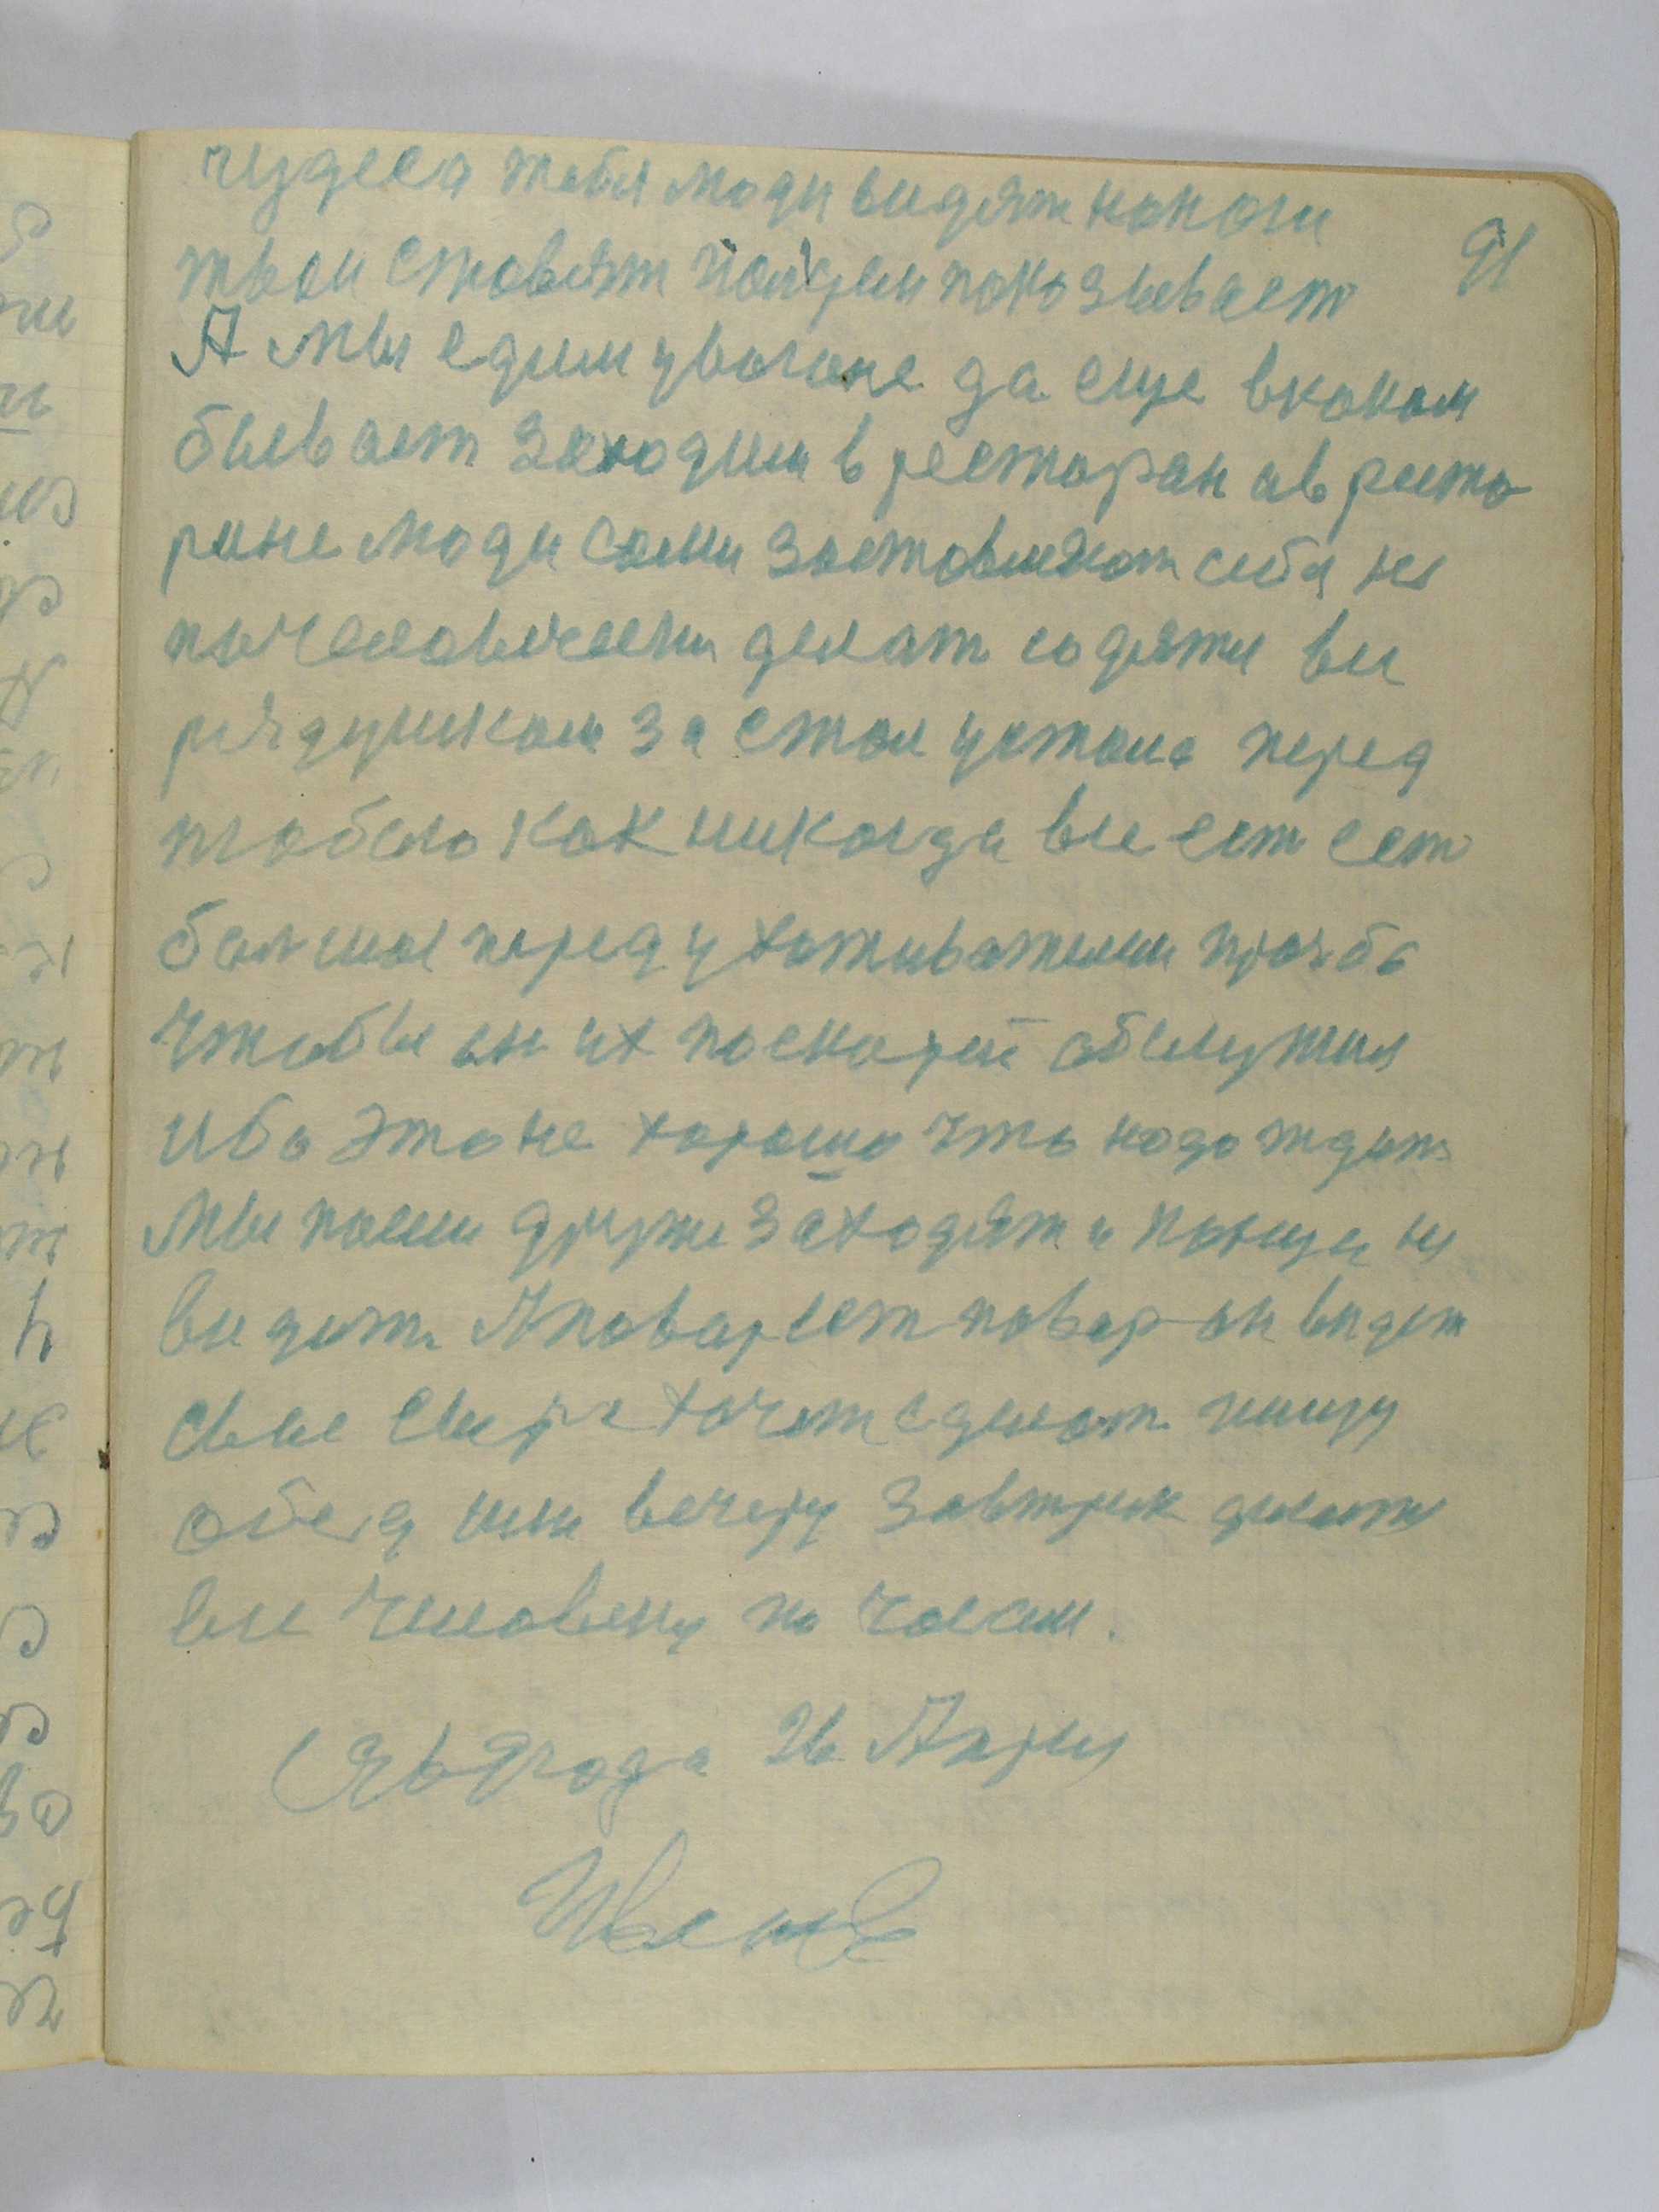 чудеса тебя люди видят на ноги
твои ставят показывает
91
А мы едим у вагоне да еще в каком
бывает заходим в ресторан ав ресто
ране люди сами заставляют себя не
почеловечески делат содятя вы
рядушком за стол устола перед
тобою как никогда вы ест ест
болшое перед ухаживателем прозба
чтобы он их поскорей обслужил
ибо это не хорошо что надо ждат
Мы поели други заходят и повара не
видют А повар ест повар он видет
свое сырье хочет сделат пищу
обед или вечеру завтрик делает
вы человеку по часам.
года 26 Апрел
Иванов